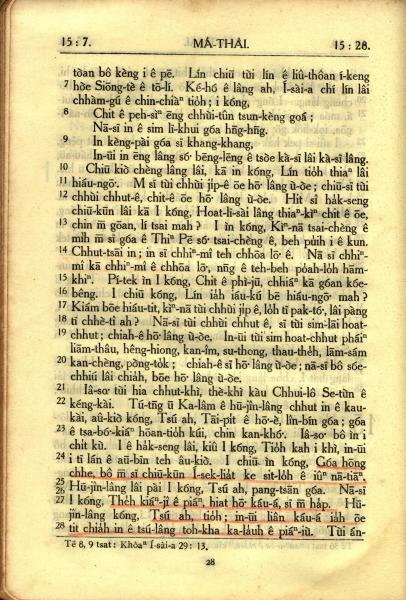 15 : 7. MÁ-THÀI. 15 : 28.
tòan bô kèng i ê pē. Lín chiū tùi lín ê liû-thôan í-keng
7 hòe Siōng-tè ê tō-lí. Ké-hó ê lâng ah, Í-sài-a chí lín lâi
chhàm-gú ê chin-chiàⁿ tio̍h; i kóng,
8 Chit ê peh-sìⁿ ēng chhùi-tûn tsun-kèng góa;
Nā-sī in ê sim lī-khui góa hn̄g-hn̄g.
9 In kèng-pài góa sī khang-khang,
In-ūi in ēng lâng só͘ bēng-lēng ê tsòe kà-sī lâi kà-sī lâng.
10 Chiū kiò chèng lâng lâi, kā in kóng, Lín tio̍h thiaⁿ lâi
11 hiáu-ngō͘. M̄ sī tùi chhùi ji̍p-ê ōe hō͘ lâng ù-òe; chiū-sī tùi
12 chhùi chhut-ê, chit-ê ōe hō͘ lâng ù-òe. Hit sî ha̍k-seng
chiū-kūn lâi kā I kóng, Hoat-lī-sài lâng thiaⁿ-kìⁿ chit ê ōe,
13 chin m̄ goān, lí tsai mah? I ìn kóng, Kìⁿ-nā tsai-chèng ê
mi̍h m̄ sī góa ê Thiⁿ Pē só͘ tsai-chèng ê, beh pui̍h i ê kun.
14 Chhut-tsāi in; in sī chhiⁿ-mî teh chhōa lō͘ ê. Nā sī chhiⁿ-
mî kā chhiⁿ-mî ê chhōa lō͘, nn̄g ê teh-beh poa̍h-lo̍h hām-
15 khiⁿ. Pí-tek ìn I kóng, Chit ê phì-jū, chhiáⁿ kā góan kóe-
16 bêng. I chiū kóng, Lín iá̍h iáu-kú bē hiáu-ngō͘ mah?
17 Kiám bōe hiáu-tit, kìⁿ-nā tùi chhùi ji̍p ê, lo̍h tī pak-tó͘, lâi pàng
18 tī chhè-tî ah? Nā-sī tùi chhùi chhut ê, sī tùi sim-lāi hoat-
19 chhut; chiah-ê hō͘ lâng ù-òe. In-ūi tùi sim hoat-chhut pháiⁿ
liām-thâu, hêng-hiong, kan-îm, su-thong, thau-the̍h, lām-sám
20 kan-chèng, pòng-tok; chiah-ê sī hō͘ lâng ù-òe; nā-sī bô sóe-
chhiú lâi chia̍h, bōe hō͘ lâng ù-òe.
21 Iâ-so͘ tùi hia chhut-khì, thè-khì kàu Chhui-lô Se-tùn ê
22 kéng-kài. Tú-tn̄g ū Ka-lâm ê hū-jîn-lâng chhut in ê kau-
kài, aū-kiò kóng, Tsú ah, Tāi-pit ê hō͘-è, lîn-bín góa; góa
23 ê tsa-bó͘-kiáⁿ hoān-tio̍h kúi, chin kan-khó͘. Iâ-so͘ bô ìn i
chi̍t kù. I ê ha̍k-seng lâi, kiû I kóng, Tio̍h kah i khì, in-ūi
24 i tī lán ê aū-bīn teh âu-kiò. I chiū ìn kóng, Góa hōng
chhe, bô m̄ sī chiū-kūn Í-sek-lia̍t ke sit-lo̍h ê iûⁿ nā-tiāⁿ.
25 Hū-jîn-lâng lâi pài I kóng, Tsú ah, pang-tsān góa. Nā-sī
26 I kóng, The̍h kiáⁿ-jî ê piáⁿ, hiat hō͘ káu-á, sī m̄ ha̍p. Hū-
27 jîn-lâng kóng, Tsú ah, tio̍h; in-ūi liân káu-á ia̍h ōe
28 tit chia̍h in ê tsú-lâng toh-kha ka-la̍uh ê piáⁿ-iù. Tùi án-
Tē 8, 9 tsat: Khòaⁿ Í-sài-a 29: 13.
28